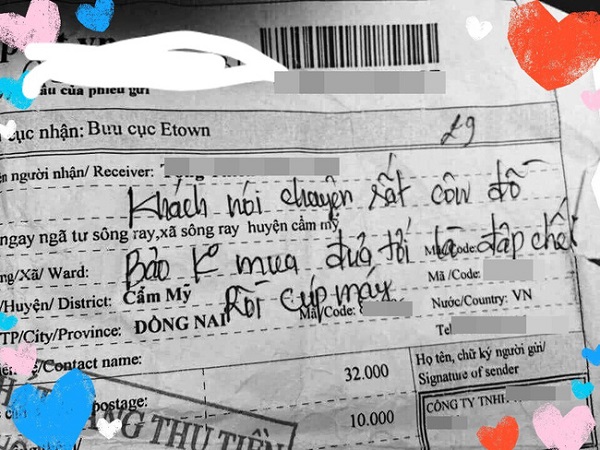 ầu của phiếu gửi
cục nhận: Bưu cục Etown
29
người nhận/ Receiver:
Khách nói chuyện rất côn đồ
ngay ngã tư sông ray,xã sông ray huyện cẩm mỹ
Bảo K mua đưa tới là đập chết
ng/Xã/ Ward:
Mã /Code:
Mã /Code:
/Huyện/ District: Cẩm Mỹ
Rồi cúp máy
TP/City/Province: ĐỒNG NAI
Mã/Code:
Nước/Country: VN
Tel
/Contact name:
32.000
Họ tên, chữ ký người gửi/
Signature of sender
postage:
10.000
CÔNG TY TNHH
NG THU TIỀN